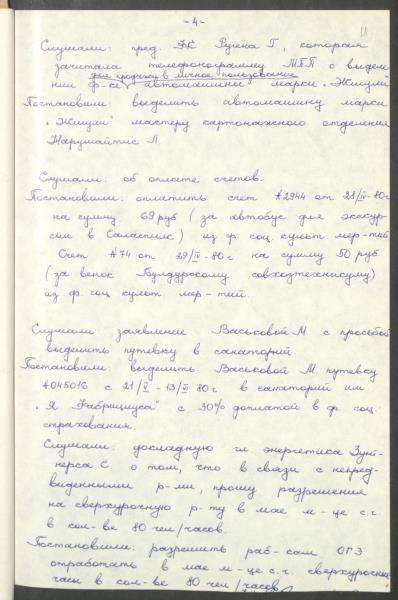 - 4 -
11
Слушали: пред. ФК Ругена Г, которая
зачитала телефонограмму МПП о выделе-
для продажи в личное пользование
нии ф-ке автомашины марки "Жигули"
Постановили: выделить автомашину марки
"Жигули" мастеру картонажного отделения
Нарушайтис Л.
Слушали: об оплате счетов.
Постановили: оплатить счет №2944 от 28/IV-80г
на сумму 69 руб (за автобус для экскур-
сии в Саласпилс) из ф. соц. культ. мер-тий
Счет №74 от 29/IV-80г на сумму 50 руб
(за венок Булдурскому совхозтехникуму)
из ф. соц культ мер-тий.
Слушали заявление Васьковой М с просьбой
выделить путевку в санаторий.
Постановили: выделить Васьковой М. путевку
№045016 с 21/V-13/VI 80г в санаторий им.
"Я. Фабрициуса" с 30% доплатой в ф. соц.
страхования.
Слушали: докладную гл энергетика
С. о том, что в связи с непред-
виденными р-ми, прошу разрешения
на сверхурочную р-ту в мае м-це с.г.
в кол-ве 80 чел/часов.
Постановили: разрешить раб-кам ОГЭ
отработать в мае м-це с.г. сверхурочные
часы в кол-ве 80 чел/часов